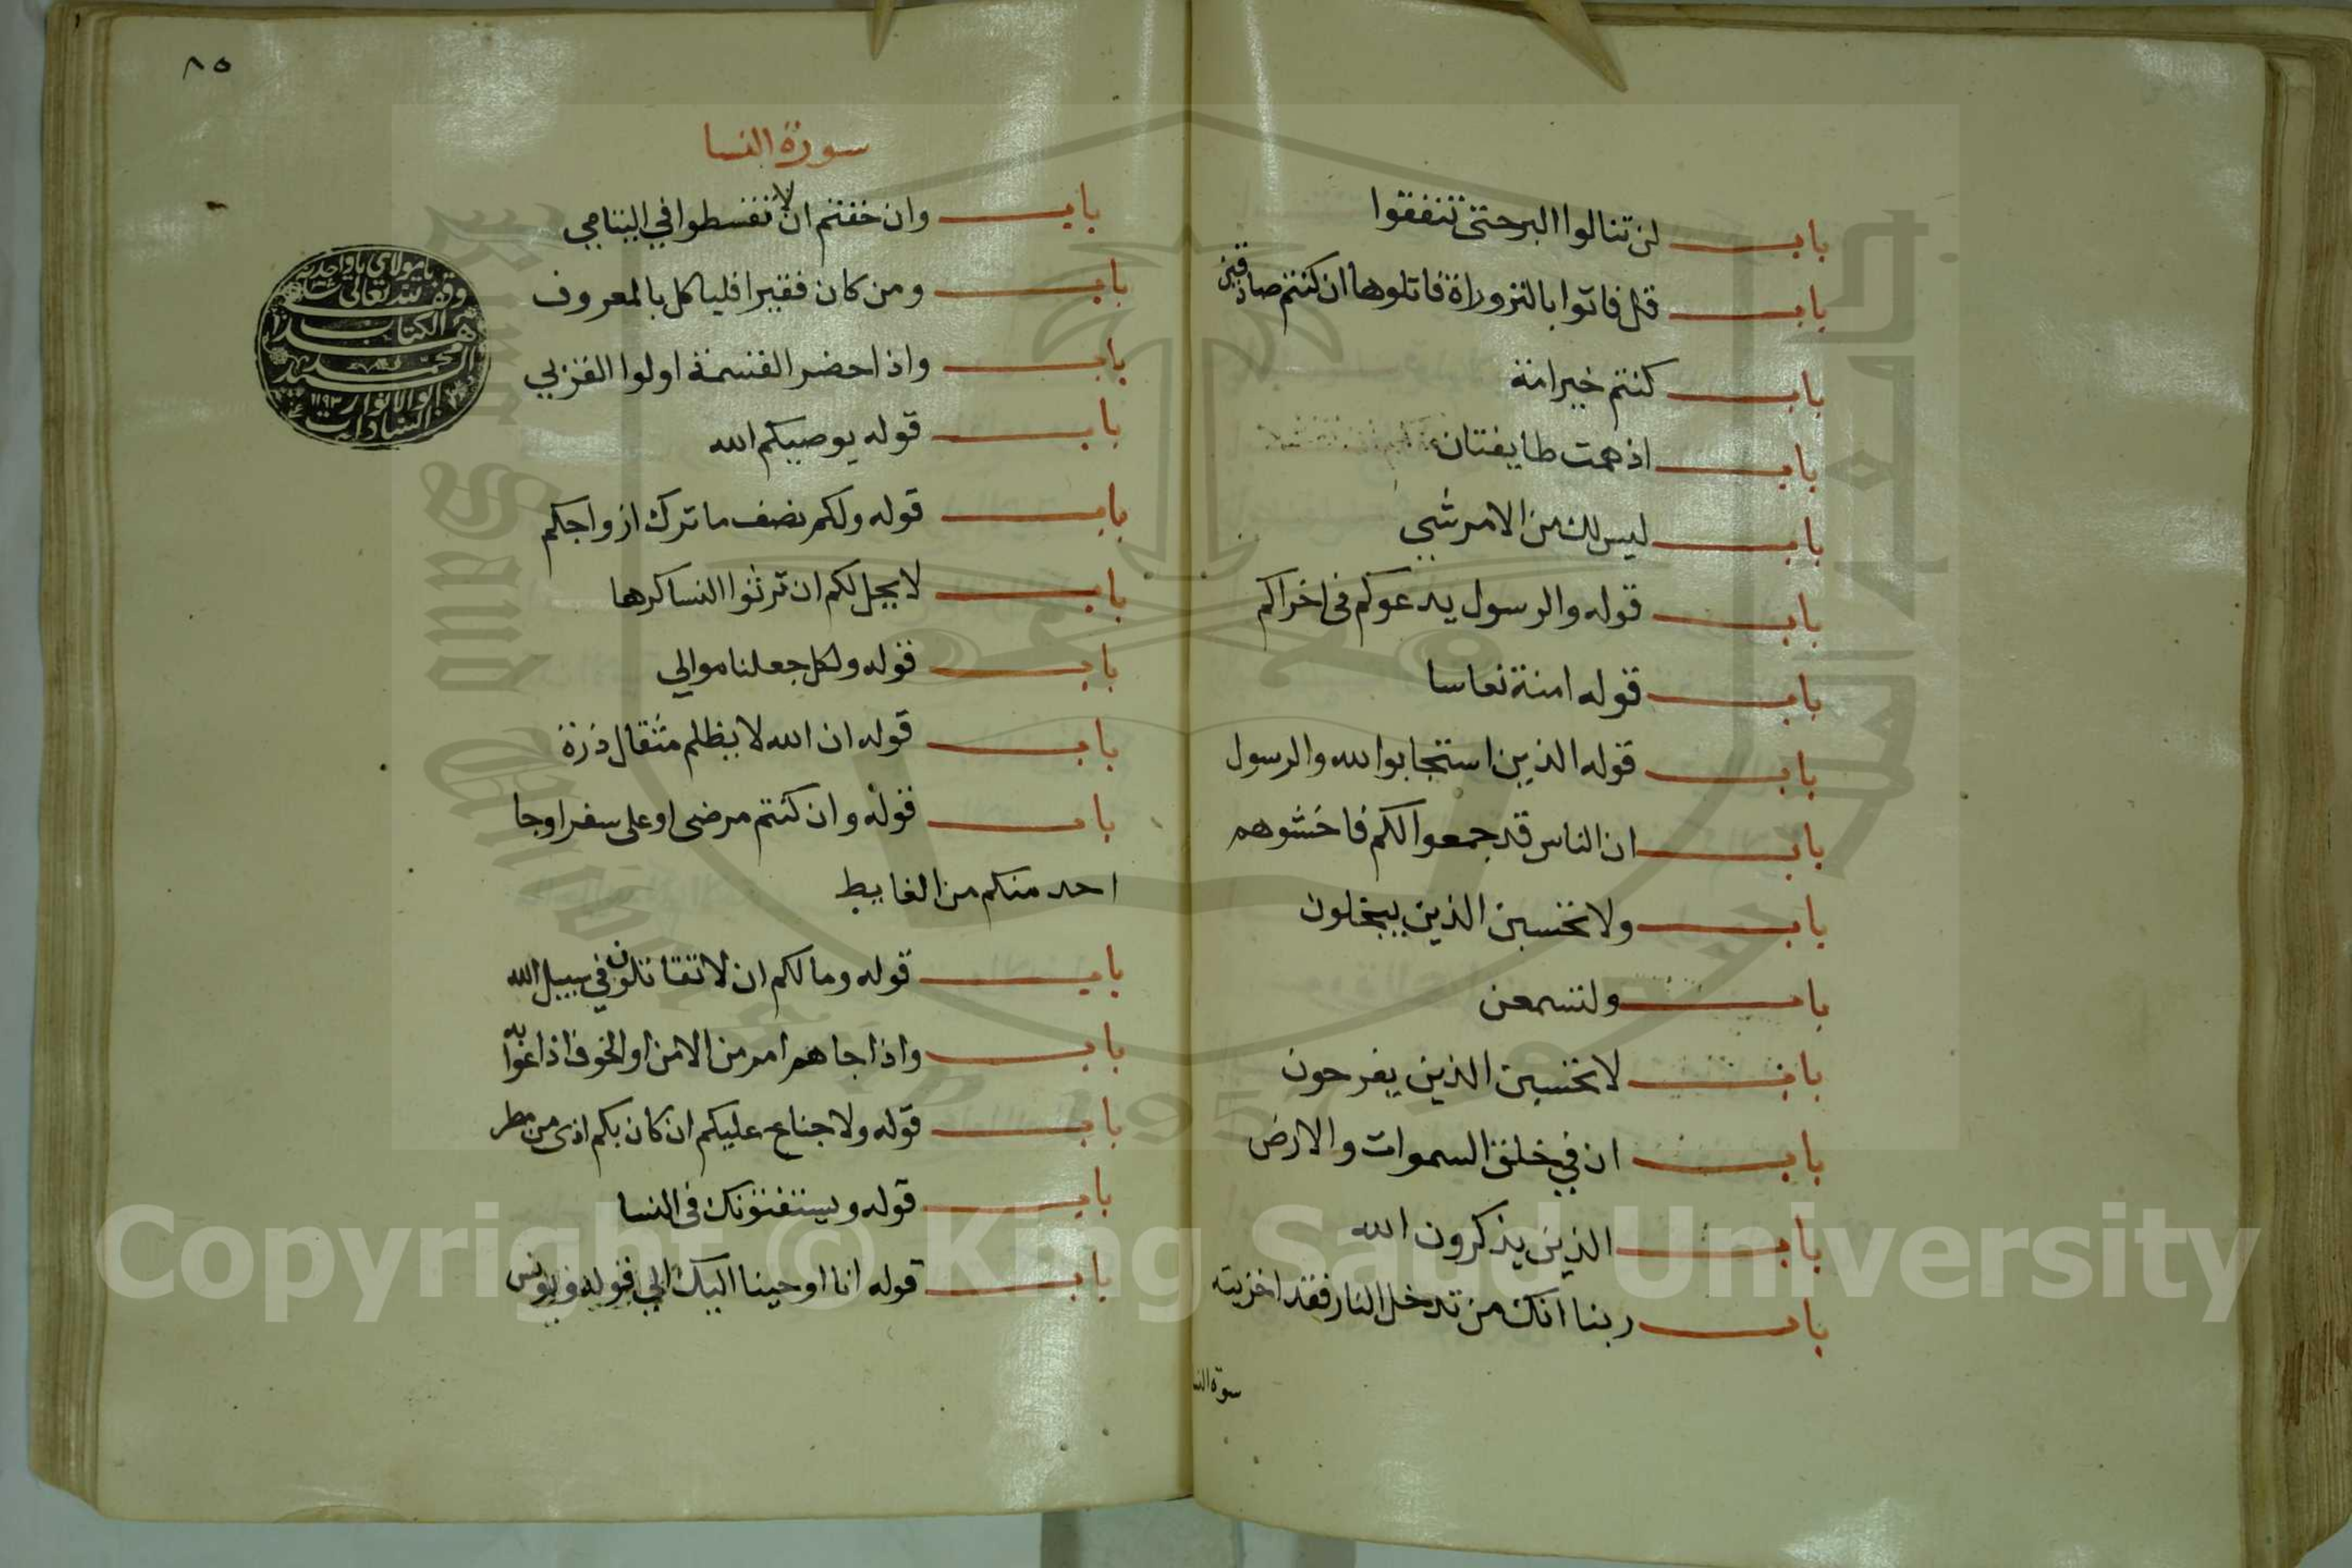 باب لن تنالوا البر حتى تنفقوا
باب قل فاتوا بالتوراة فاتلوها ان كنتم صادقين
باب كنتم خير امة
باب اذ همت طايفتان
باب ليس لك من الامر شي
باب قوله والرسول يدعوكم فى اخراكم
باب قوله امنة نعاسا
باب قوله الذين استجابوا لله والرسول
باب ان الناس قد جمعوا لكم فاخشوهم
باب ولا تحسبن الذين يبخلون
باب ولتسمعن
باب لا تحسبن الذين يفرحون
باب ان في خلق السموات والارض
باب الذين يذكرون الله
باب ربنا انك من تدخل النار فقد اخزيته
سورة النسا
٨٥
سورة النسا
باب وان خفتم ان لا تقسطوا في اليتامي
باب ومن كان فقيرا فلياكل بالمعروف
باب واذا حضر القسمة اولوا القربي
باب قوله يوصيكم الله
باب قوله ولكم نصف ما ترك ازواجكم
باب لا يحل لكم ان ترثوا النسا كرها
باب قوله ولكل جعلنا موالي
باب قوله ان الله لا يظلم مثقال ذرة
باب قوله وان كنتم مرضى او على سفر او جا
احد منكم من الغايط
باب قوله وما لكم ان لا تقاتلون في سبيل الله
باب واذا جاهم امر من الامن او الخوف اذاعوا به
باب قوله ولا جناح عليكم ان كان بكم اذى من مطر
باب قوله ويستفتونك فى النسا
باب قوله انا اوحينا اليك الي قوله ويونس
يا مولاي يا واحد
وقف لله تعالى
هذا الكتاب
السيد محمد
ابو الانوار ١١٩٣
السادات
King Saud University
1957
Copyright © King Saud University